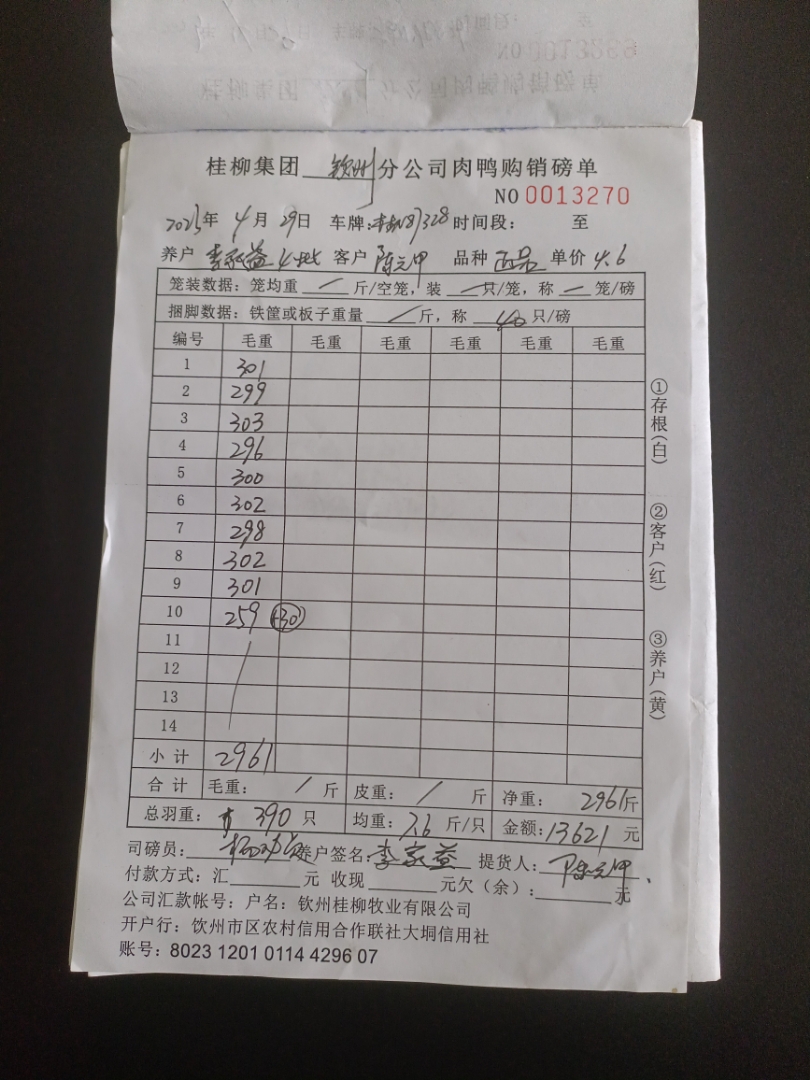 桂柳集团 钦州 分公司肉鸭购销磅单
NO 0013270
2023年 4月 29日 车牌: 87328 时间段: 至
养户 李家益 客户 陈元甲 品种 正品 单价 4.6
笼装数据: 笼均重 / 斤/空笼, 装 一 只/笼, 称 一 笼/磅
捆脚数据: 铁筐或板子重量 / 斤, 称 40 只/磅
编号 毛重 毛重 毛重 毛重 毛重 毛重
1 301
2 299
3 303
4 296
5 300
6 302
7 298
8 302
9 301
10 259 (-30)
11
12
13
14
小计 2961
合计 毛重: / 斤 皮重: / 斤 净重: 2961斤
总羽重: 390 只 均重: 7.6 斤/只 金额: 13621 元
司磅员: 养户签名: 李家益 提货人: 陈元甲
付款方式: 汇 元 收现 元欠(余): 元
公司汇款帐号: 户名: 钦州桂柳牧业有限公司
开户行: 钦州市区农村信用合作联社大垌信用社
账号: 8023 1201 0114 4296 07
①存根(白)
②客户(红)
③养户(黄)